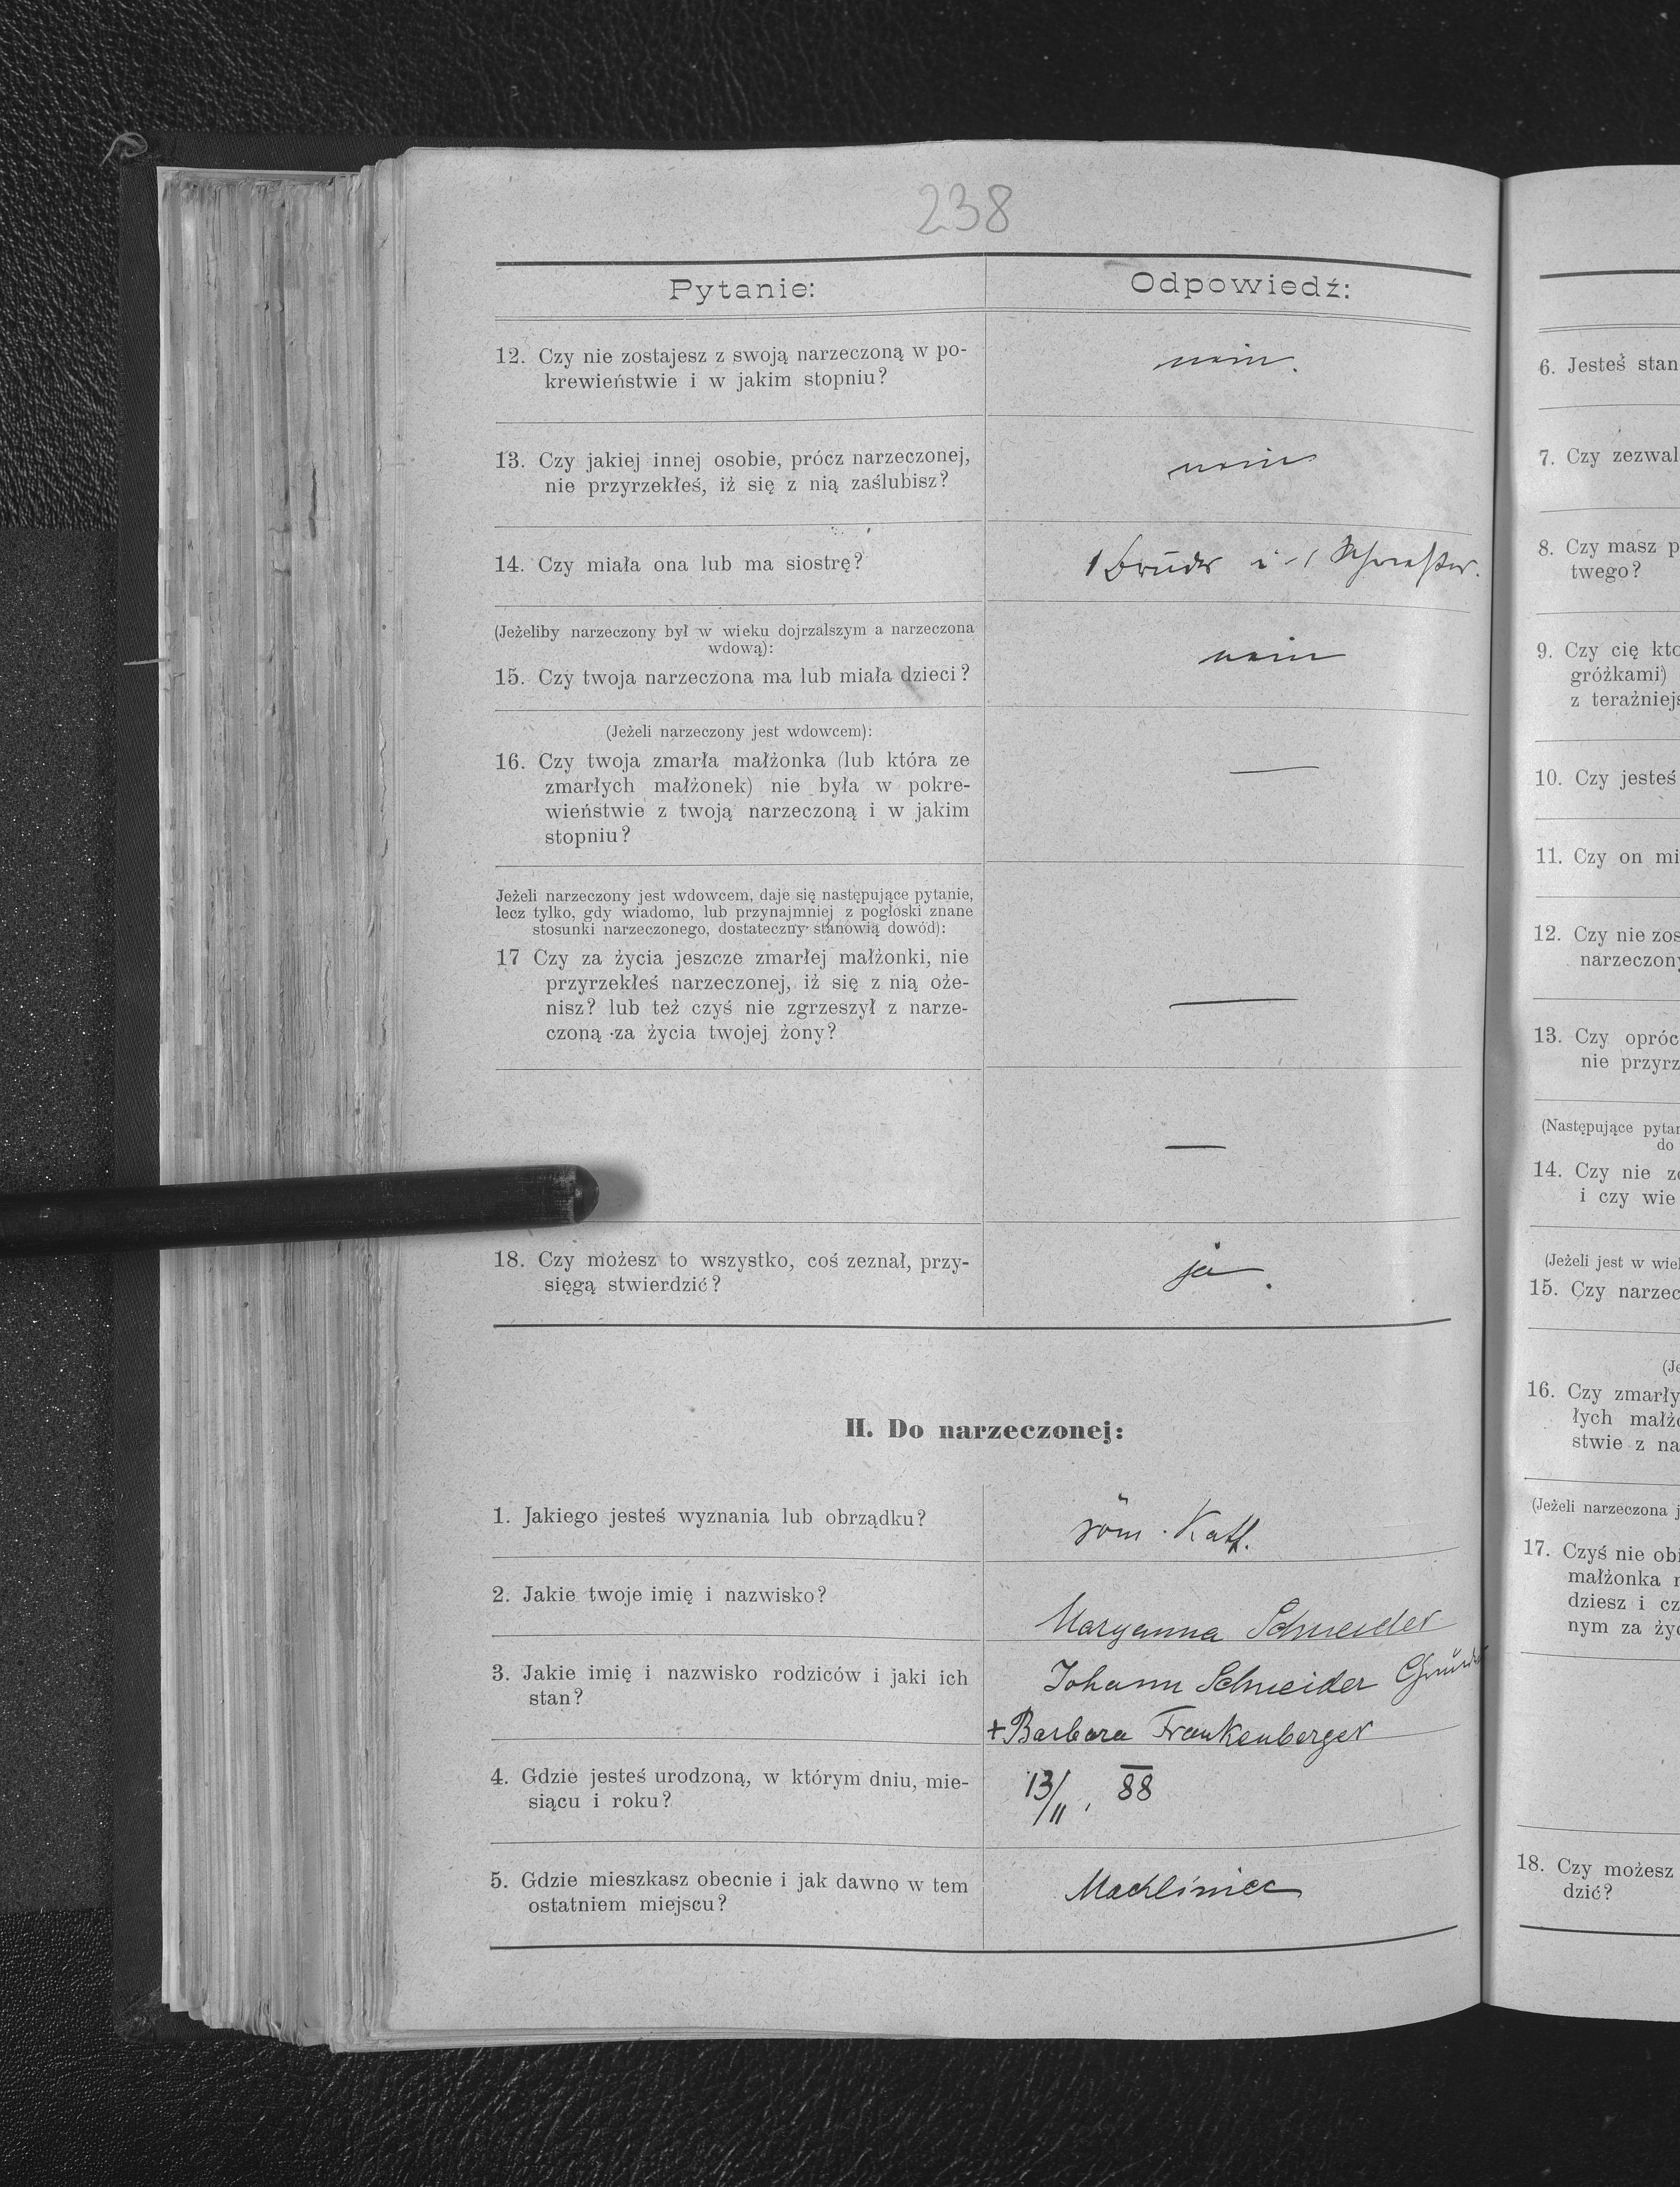 238
Pytanie:
Odpowiedź:
12. Czy nie zostajesz z swoją narzeczoną w po-
krewieństwie i w jakim stopniu?
nein.
13. Czy jakiej innej osobie, prócz narzeczonej,
nie przyrzekłeś, iż się z nią zaślubisz?
nein
14. Czy miała ona lub ma siostrę?
1 Bruder i 1 Schwester.
(Jeżeliby narzeczony był w wieku dojrzalszym a narzeczona
wdową):
15. Czy twoja narzeczona ma lub miała dzieci?
nein
(Jeżeli narzeczony jest wdowcem):
16. Czy twoja zmarła małżonka (lub która ze
zmarłych małżonek) nie była w pokre-
wieństwie z twoją narzeczoną i w jakim
stopniu?
—
Jeżeli narzeczony jest wdowcem, daje się następujące pytanie,
lecz tylko, gdy wiadomo, lub przynajmniej z pogłoski znane
stosunki narzeczonego, dostateczny stanowią dowód):
17 Czy za życia jeszcze zmarłej małżonki, nie
przyrzekłeś narzeczonej, iż się z nią oże-
nisz? lub też czyś nie zgrzeszył z narze-
czoną za życia twojej żony?
—
—
18. Czy możesz to wszystko, coś zeznał, przy-
sięgą stwierdzić?
ja.
II. Do narzeczonej:
1. Jakiego jesteś wyznania lub obrządku?
röm. Kath.
2. Jakie twoje imię i nazwisko?
Maryanna Schneider
3. Jakie imię i nazwisko rodziców i jaki ich
stan?
Johann Schneider
+ Barbara Frankenberger
4. Gdzie jesteś urodzoną, w którym dniu, mie-
siącu i roku?
13/11, 88
5. Gdzie mieszkasz obecnie i jak dawno w tem
ostatniem miejscu?
Machliniec
6. Jesteś stan
7. Czy zezwal
8. Czy masz p
twego?
9. Czy cię kto
gróżkami)
z teraźniejs
10. Czy jesteś
11. Czy on mi
12. Czy nie zos
narzeczony
13. Czy opróc
nie przyrz
(Następujące pytan
do
14. Czy nie zo
i czy wie
(Jeżeli jest w wiek
15. Czy narzec
(Je
16. Czy zmarły
łych małżo
stwie z na
(Jeżeli narzeczona j
17. Czyś nie obi
małżonka n
dziesz i cz
nym za życ
18. Czy możesz
dzić?